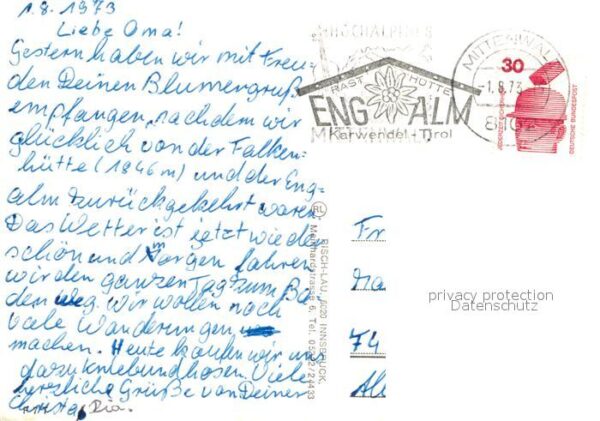 1.8.1973
Liebe Oma!
Gestern haben wir mit Freu-
den Deinen Blumengruß
empfangen, nachdem wir
glücklich von der Falken-
hütte (1846 m) und der Eng-
alm zurückgekehrt waren.
Das Wetter ist jetzt wieder
schön und Morgen fahren
wir den ganzen Tag zum Ba-
den weg. Wir wollen noch
viele Wanderungen
machen. Heute kaufen wir uns
dazu Kniebundhosen. Viele
herzliche Grüße von Deiner
Christa, Ria.
RAST HÜTTE
ENG ALM
Karwendel-Tirol
MITTENWALD
-1.8.73
8102
30
JEDERZEIT SICHERHEIT
DEUTSCHE BUNDESPOST
RL
RISCH-LAU, 6020 INNSBRUCK,
Meinhardstrasse 6, Tel. 05222/24433
Fr
74
privacy protection
Datenschutz